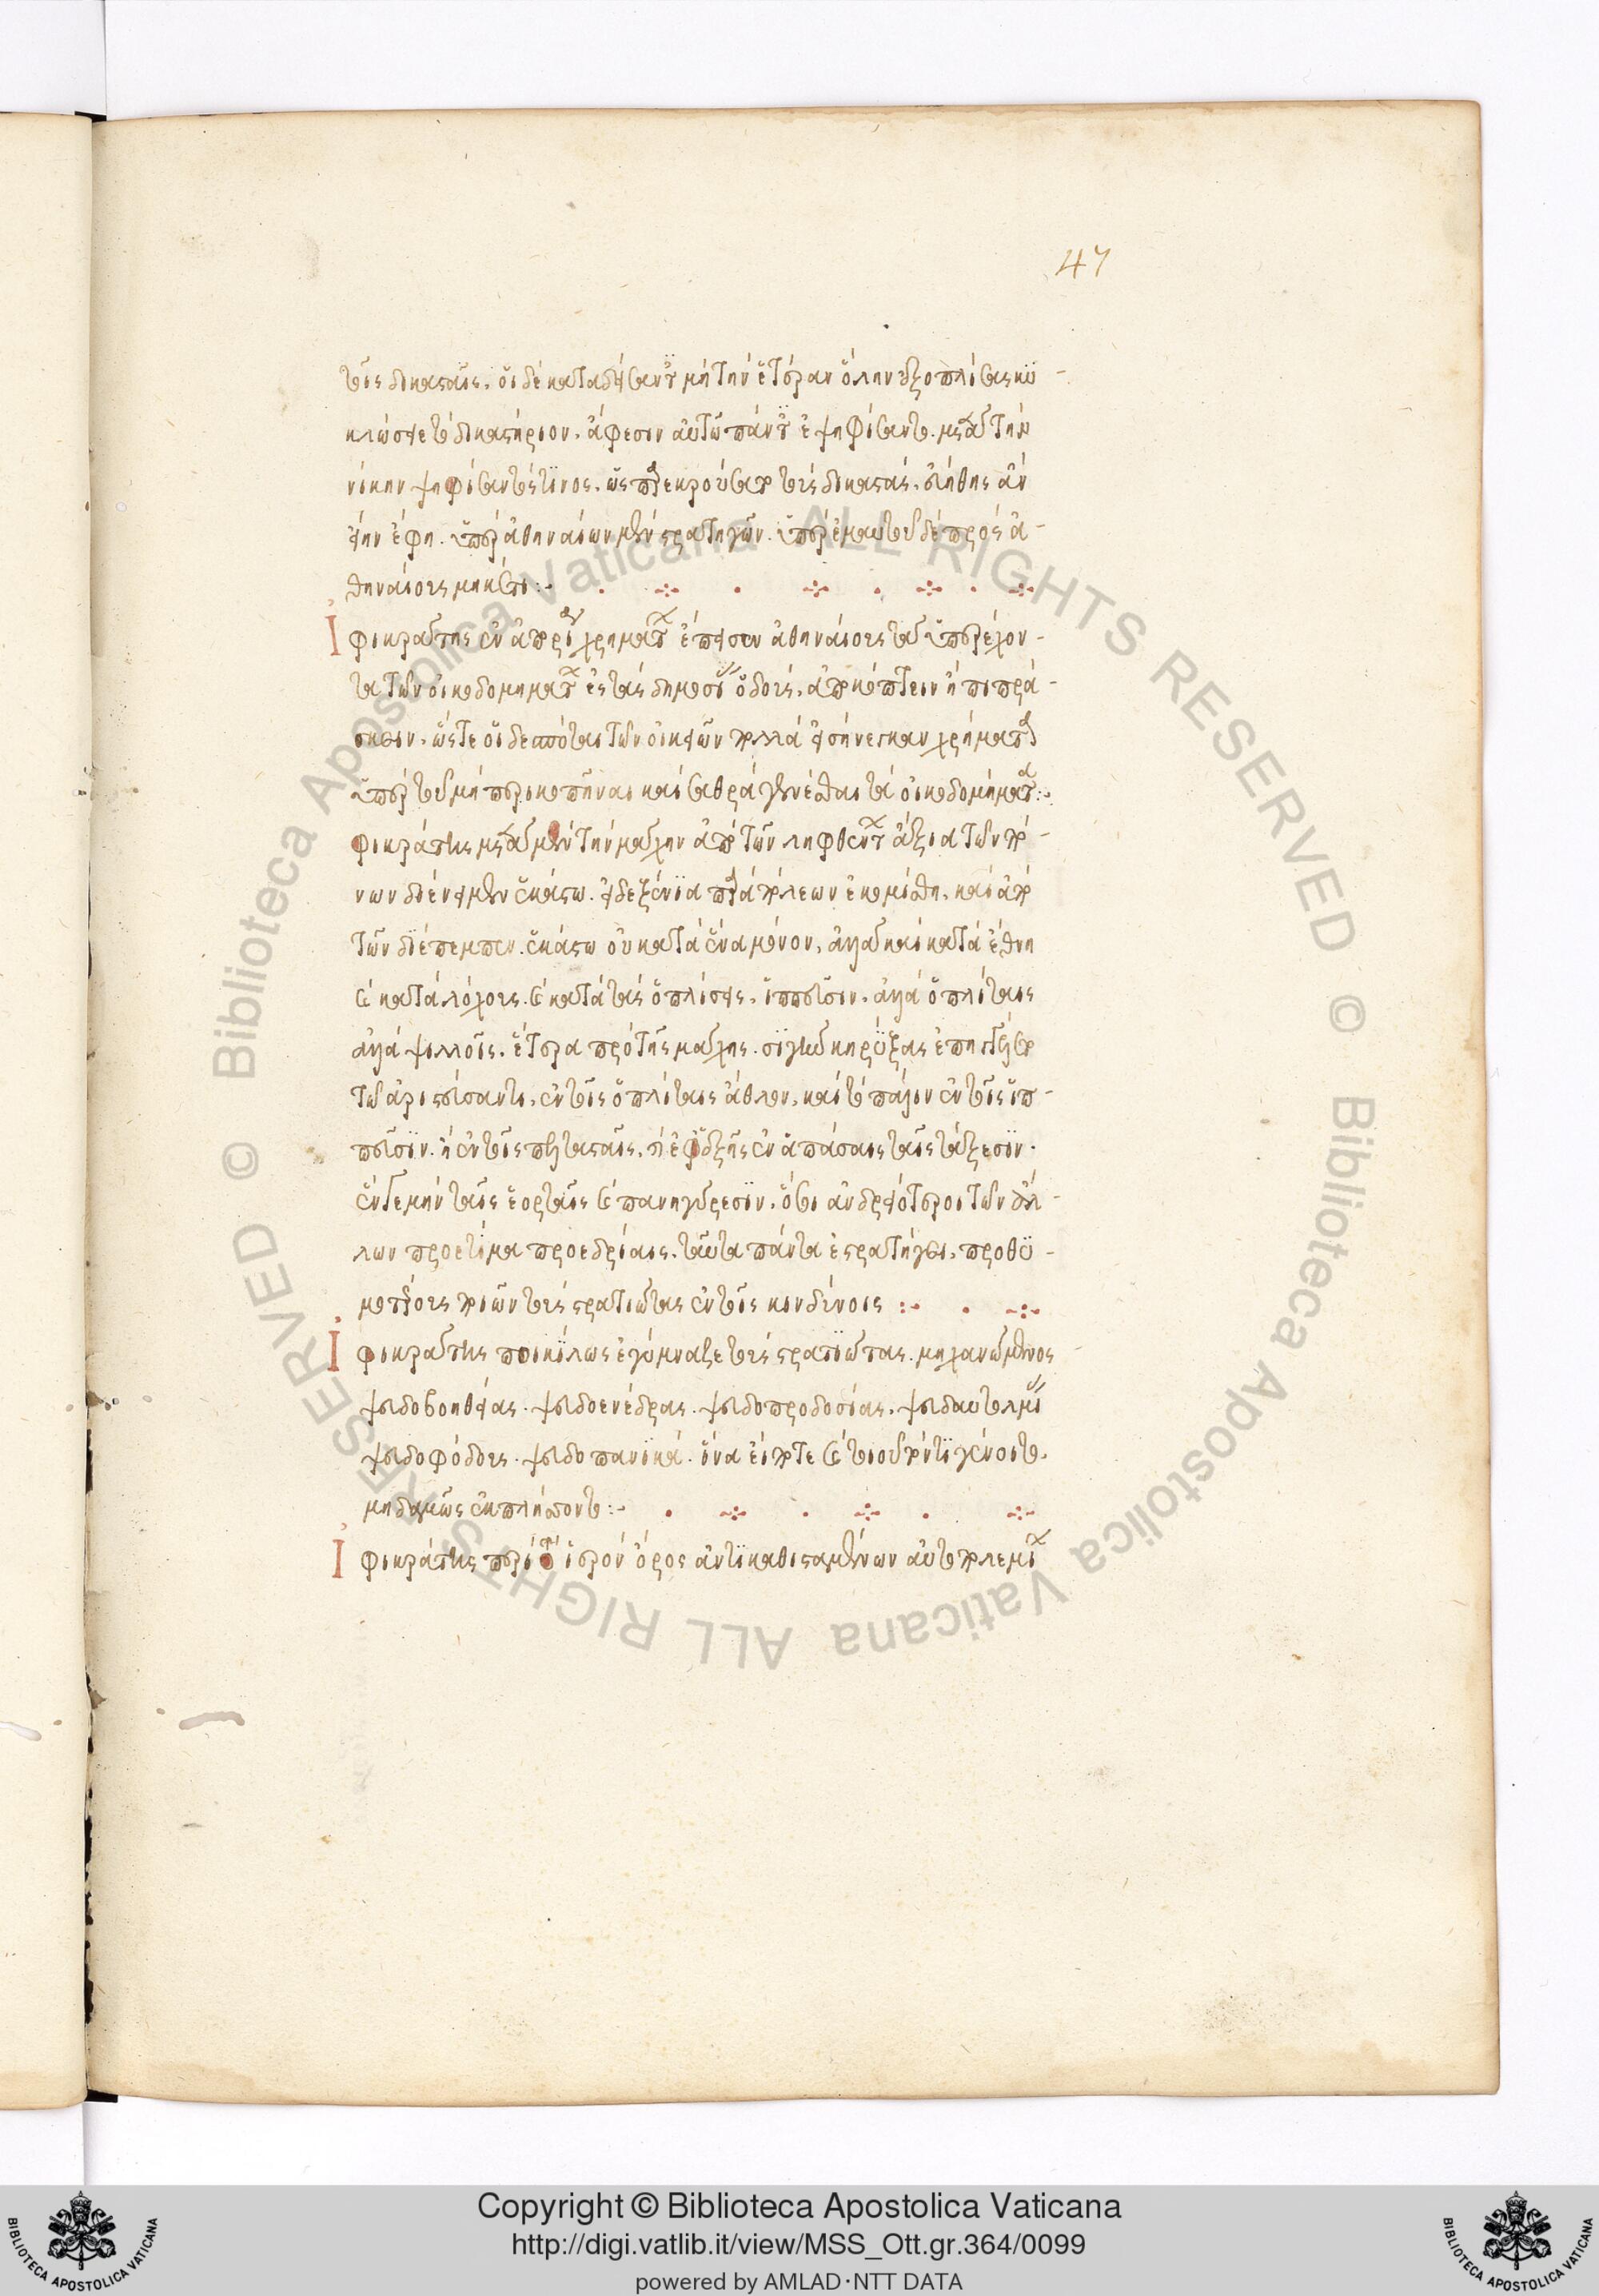 47
τοῖς δικασταῖς. οἱ δὲ καταδείσαντες μὴ τὴν ἑτέραν ὅλην ἐξοπλίσας κυ-
κλώσειε τὸ δικαστήριον, ἄφεσιν αὐτῶ πάντες ἐψηφίσαντο. μετὰ τὴν
νίκην ψηφίσαντός τινος, ὡς παρεκρούσατο τοὺς δικαστάς. εὐήθης ἂν
εἴην ἔφη. ὑπὲρ ἀθηναίων μὲν στρατηγῶν. ὑπὲρ ἐμαυτοῦ δὲ πρὸς ἀ-
θηναίους μηκέτι :-
Ἰφικράτης ἐν ἀπορίᾳ χρημάτων ἔπεισεν ἀθηναίους τὰ ὑπερέχον-
τα τῶν οἰκοδομημάτων ἐς τὰς δημοσίας ὁδοὺς, ἀποκόπτειν ἢ πιπρά-
σκειν. ὥστε οἱ δεσπόται τῶν οἰκειῶν πολλὰ εἰσήνεγκαν χρήματα
ὑπὲρ τοῦ μὴ περικοπῆναι καὶ σαθρὰ γενέσθαι τὰ οἰκοδομήματα :-
φικράτης μετὰ μὲν τὴν μάχην ἀπὸ τῶν ληφθέντων ἄξια τῶν πό-
νων διένειμεν ἑκάστω. εἰ δὲ ξένια παρὰ πόλεων ἐκομίσθη, καὶ ἀπὸ
τῶν διέπεμπεν. ἑκάστω οὐ κατὰ ἕνα μόνον, ἀλλὰ καὶ κατὰ ἔθνη
καὶ κατὰ λόχους. καὶ κατὰ τὰς ὁπλίσεις. ἱππεῦσιν. ἀλλὰ ὁπλίταις
ἀλλὰ ψιλλοῖς. ἕτερα πρὸ τῆς μάχης. σιγὴν κηρύξας ἐπηγγέλετο
τῶ ἀριστεύσαντι. ἐν τοῖς ὁπλίταις ἆθλον, καὶ τὸ πάλιν ἐν τοῖς ἱπ-
πεῦσιν. ἢ ἐν τοῖς πελτασταῖς. ἢ ἐφεξῆς ἐν ἁπάσαις ταῖς τάξεσιν.
ἔν γε μὴν ταῖς ἑορταῖς καὶ πανηγύρεσιν. ὅσοι ἀνδρειότεροι τῶν ἄλ-
λων προετίμα προεδρίαις. ταῦτα πάντα ἐστρατήγει, προθυ-
μοτέρους ποιῶν τοὺς στρατιώτας ἐν τοῖς κινδύνοις :-
Ἰφικράτης ποικίλως ἐγύμναζε τοὺς στρατιώτας. μηχανώμενος
ψευδοβοηθείας. ψευδοενέδρας. ψευδοπροδοσίας. ψευδαυτομολίας
ψευδοφόδους. ψευδοπανικά. ἵνα εἴ ποτέ καὶ τοιοῦτόν τι γένοιτο.
μηδαμῶς ἐκπλήττοντο :-
Ἰφικράτης περὶ τὸ ἱερὸν ὄρος ἀντικαθισταμένων αὐτῶ πολεμίων
Copyright © Biblioteca Apostolica Vaticana
http://digi.vatlib.it/view/MSS_Ott.gr.364/0099
powered by AMLAD·NTT DATA